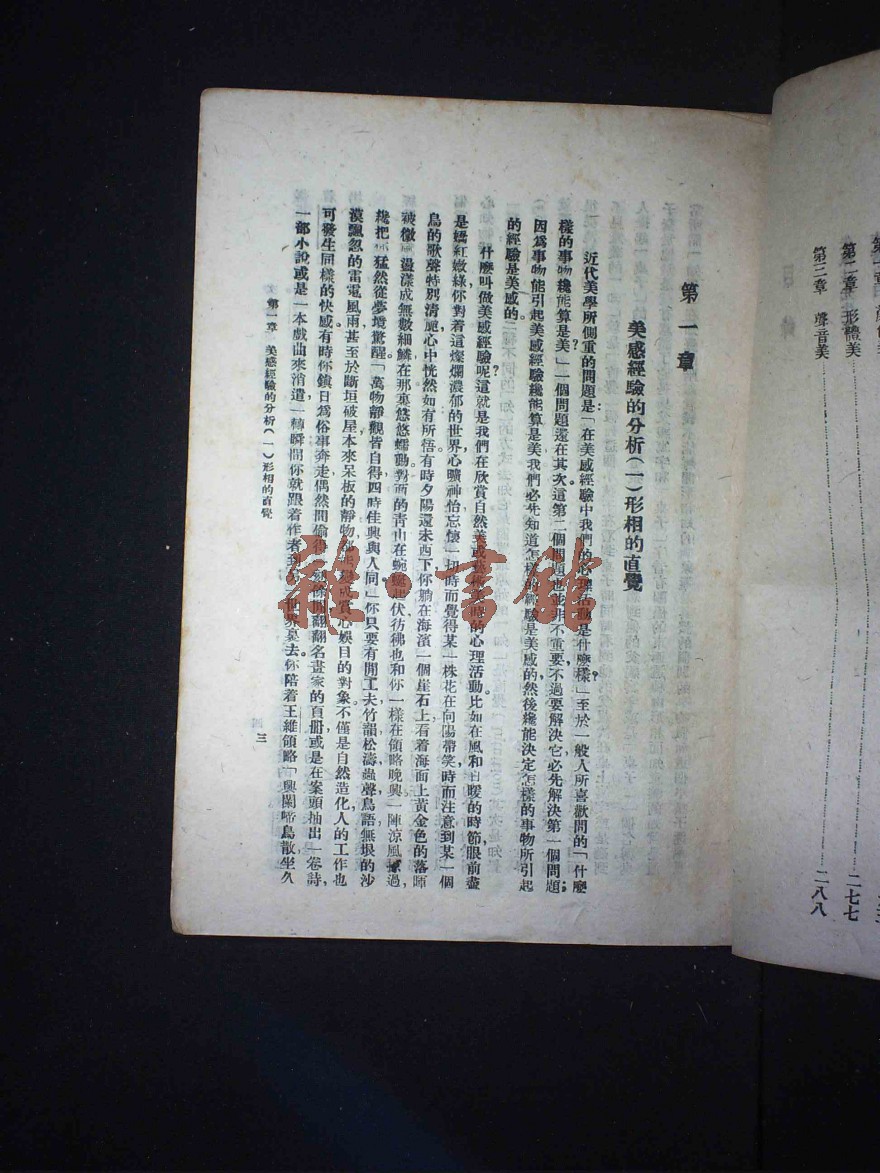 第二章 形體美……二七七
第三章 聲音美……二八八
第一章
美感經驗的分析(一)形相的直覺
近代美學所側重的問題是:「在美感經驗中我們的心理活動是什麼樣?」至於一般人所喜歡問的「什麼
樣的事物纔能算是美」一個問題還在其次。這第二個問題也並非不重要,不過要解決它,必先解決第一個問題;
因爲事物能引起美感經驗纔能算是美,我們必先知道怎樣的經驗是美感的,然後纔能決定怎樣的事物所引起
的經驗是美感的。
什麼叫做美感經驗呢?這就是我們在欣賞自然美或藝術美時的心理活動。比如在風和日暖的時節,眼前盡
是嬌紅嫩綠,你對着這燦爛濃郁的世界,心曠神怡,忘懷一切,時而覺得某一株花在向陽帶笑,時而注意到某一個
鳥的歌聲特別清脆,心中恍然如有所悟。有時夕陽還未西下,你躺在海濱一個崖石上,看着海面上黃金色的落暉
被微風盪漾成無數細鱗,在那裏悠悠蠕動。對面的青山在蜿蜒起伏,彷彿也和你一樣在領略晚興。一陣涼風掠過,
纔把你猛然從夢境驚醒。「萬物靜觀皆自得,四時佳興與人同。」你只要有閒工夫,竹韻、松濤、蟲聲、鳥語、無垠的沙
漠、飄忽的雷電風雨,甚至於斷垣破屋,本來呆板的靜物,都能變成賞心娛目的對象。不僅是自然造化,人的工作也
可發生同樣的快感。有時你鎮日爲俗事奔走,偶然間偷得一刻餘閒,翻翻名畫家的頁冊,或是在案頭抽出一卷詩、
一部小說或是一本戲曲來消遣,一轉瞬間你就跟着作者到另一世界裏去。你陪着王維領略「興闌啼鳥散,坐久
第一章 美感經驗的分析(一)形相的直覺
三
龍·書館